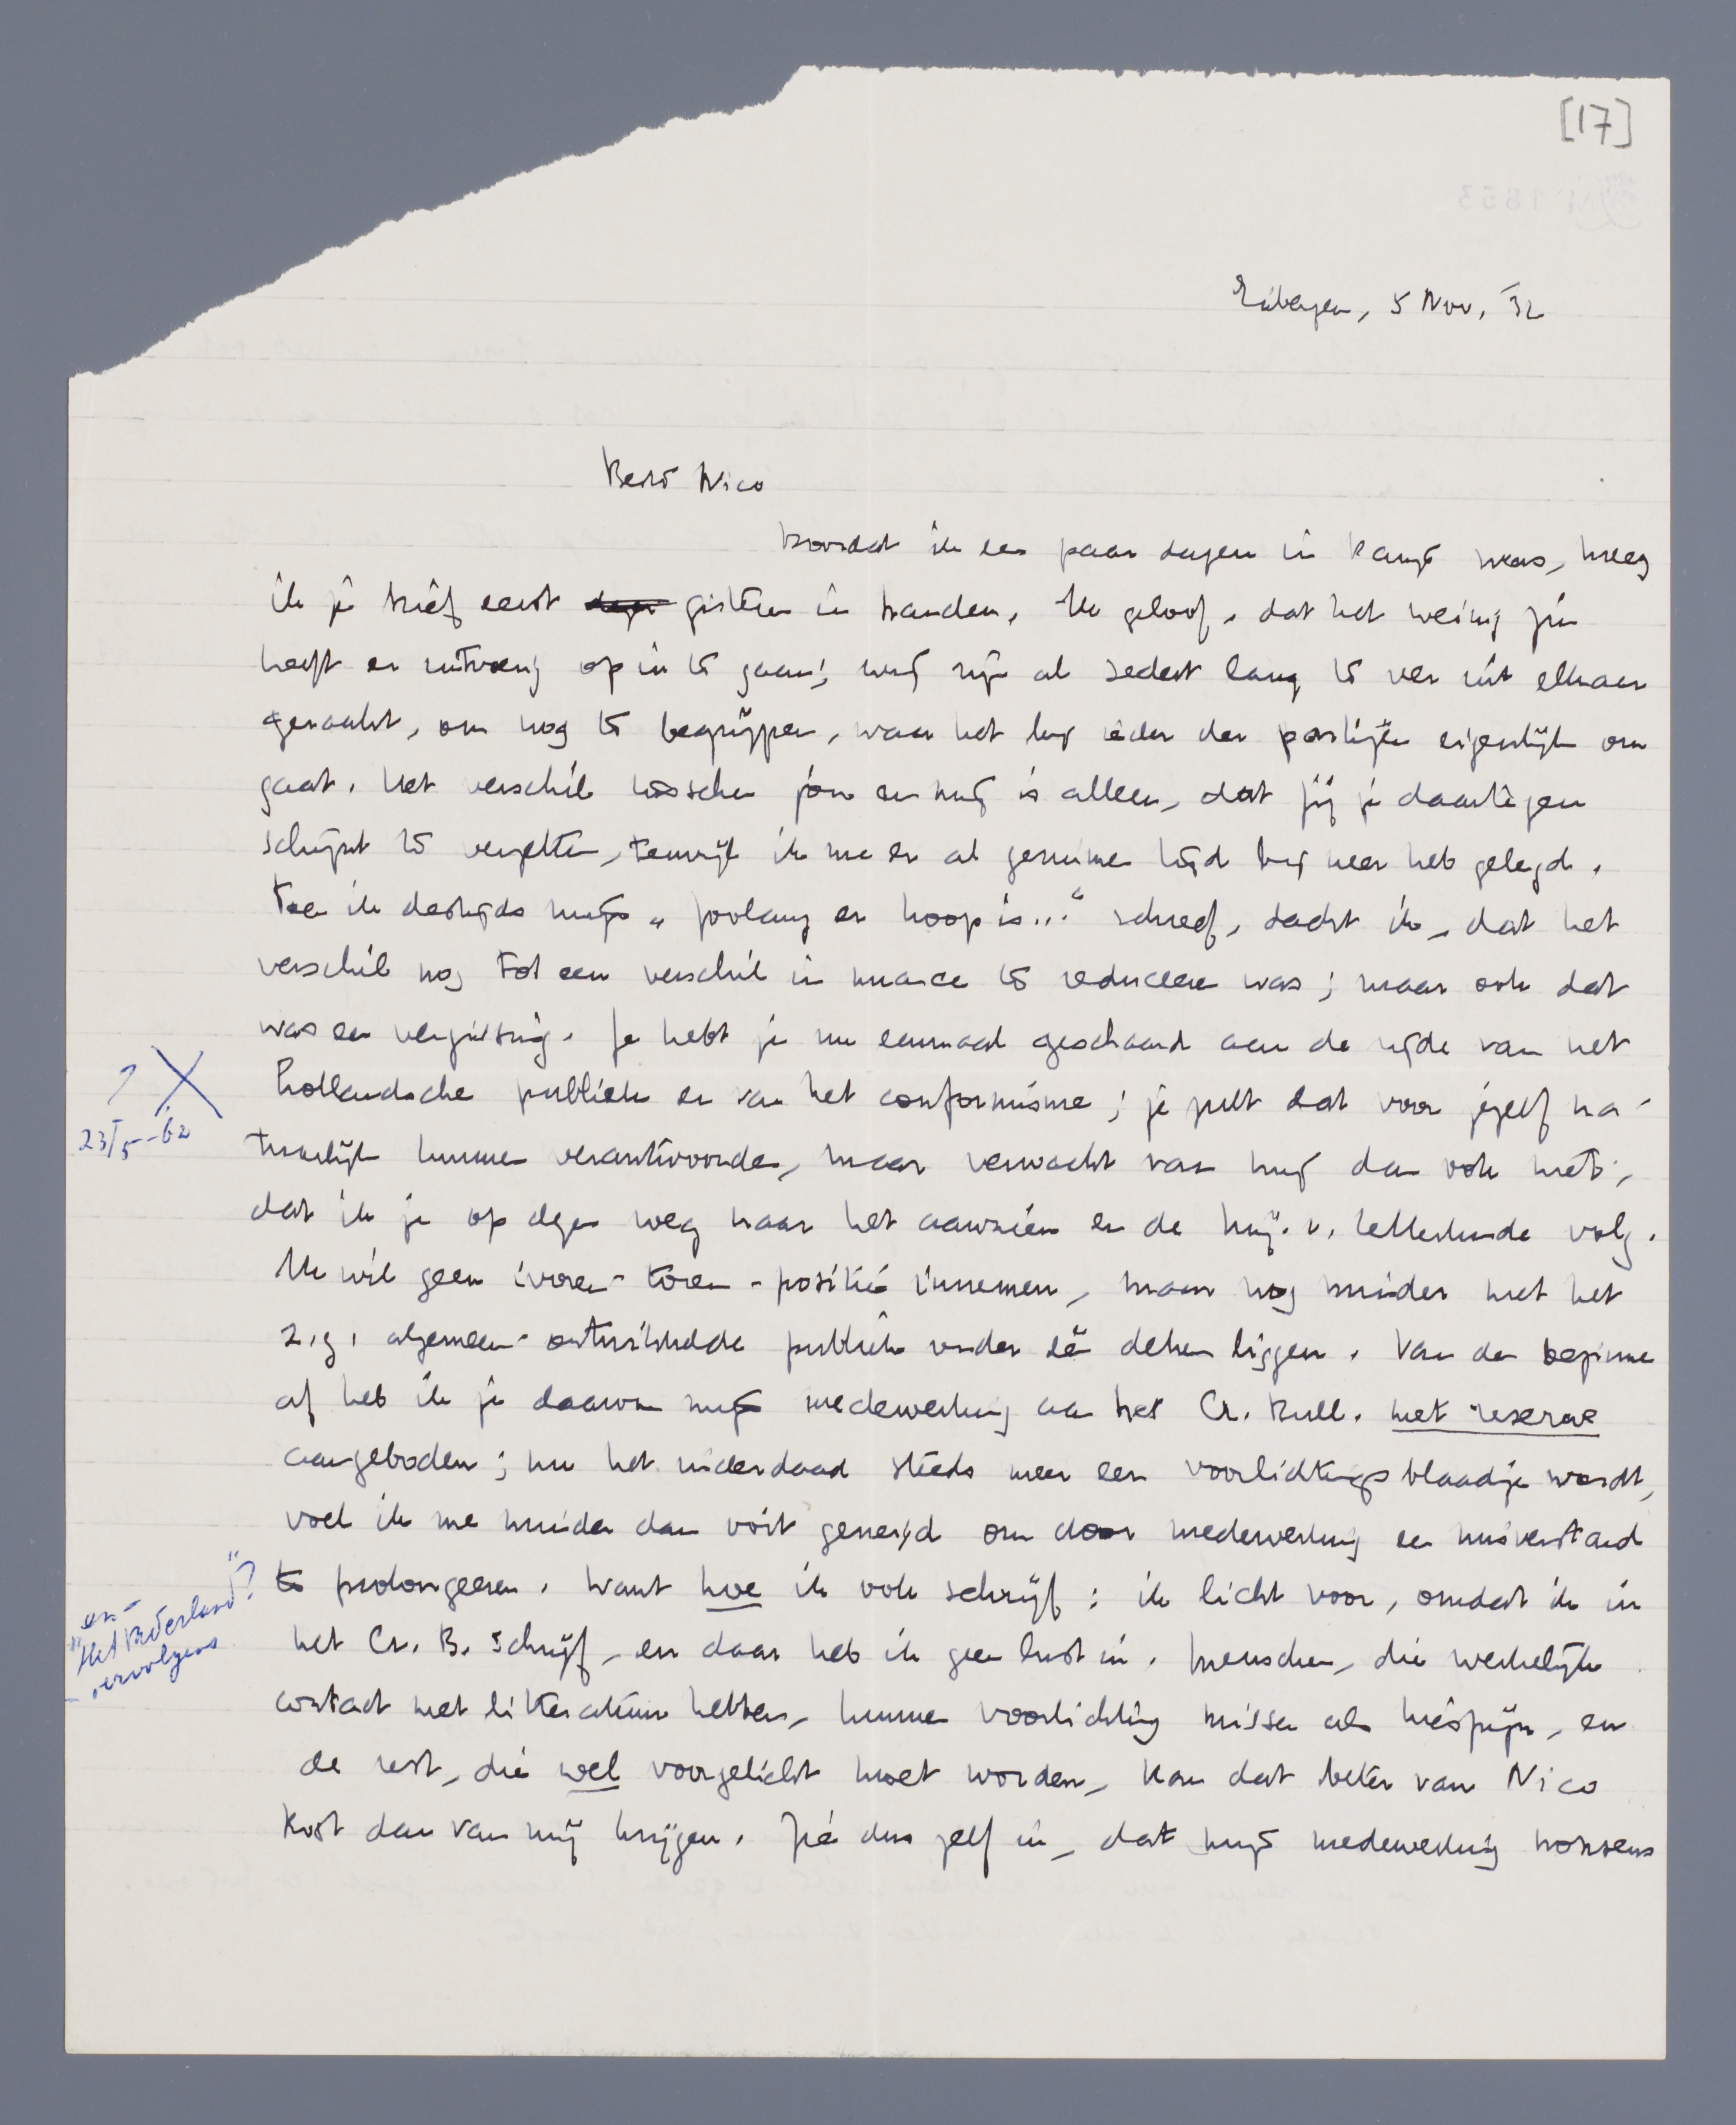 [17]
Eibergen, 5 Nov. '32
Beste Nico
Doordat ik een paar dagen in kamp was, kreeg
ik je brief eerst gisteren in handen. Ik geloof, dat het weinig zin
heeft er uitvoerig op in te gaan; wij zijn al sedert lang te ver uit elkaar
geraakt, om nog te begrijpen, waar het bij ieder der partijen eigenlijk om
gaat. Het verschil tusschen jou en mij is alleen, dat jij je daartegen
schijnt te verzetten, terwijl ik me er al geruimen tijd bij neer heb gelegd.
Toen ik destijds mijn „Zoolang er hoop is..." schreef, dacht ik, dat het
verschil nog tot een verschil in nuance te reduceeren was; maar ook dat
was een vergissing. Je hebt je nu eenmaal geschaard aan de zijde van het
Hollandsche publiek en van het conformisme; je zult dat voor jezelf na-
tuurlijk kunnen verantwoorden, maar verwacht van mij dan ook niet,
dat ik je op dezen weg naar het aanzien en de Mij. v. Letterkunde volg.
Ik wil geen ivoren-toren-positie innemen, maar nog minder met het
z.g. algemeen-ontwikkelde publiek onder één deken liggen. Van den beginne
af heb ik je daarom mijn medewerking aan het Cr. Bull. met reserve
aangeboden; nu het inderdaad steeds meer een voorlichtingsblaadje wordt,
voel ik me minder dan ooit geneigd om door medewerking een misverstand
te prolongeeren. Want hoe ik ook schrijf: ik licht voor, omdat ik in
het Cr. B. schrijf, en daar heb ik geen lust in. Menschen, die werkelijk
contact met litteratuur hebben, kunnen voorlichting missen als kiespijn, en
de rest, die wel voorgelicht moet worden, kan dat beter van Nico
Rost dan van mij krijgen. Zie dus zelf in, dat mijn medewerking nonsens
? X
23/5-62
en-
"Het Vaderland"?
vervolgens